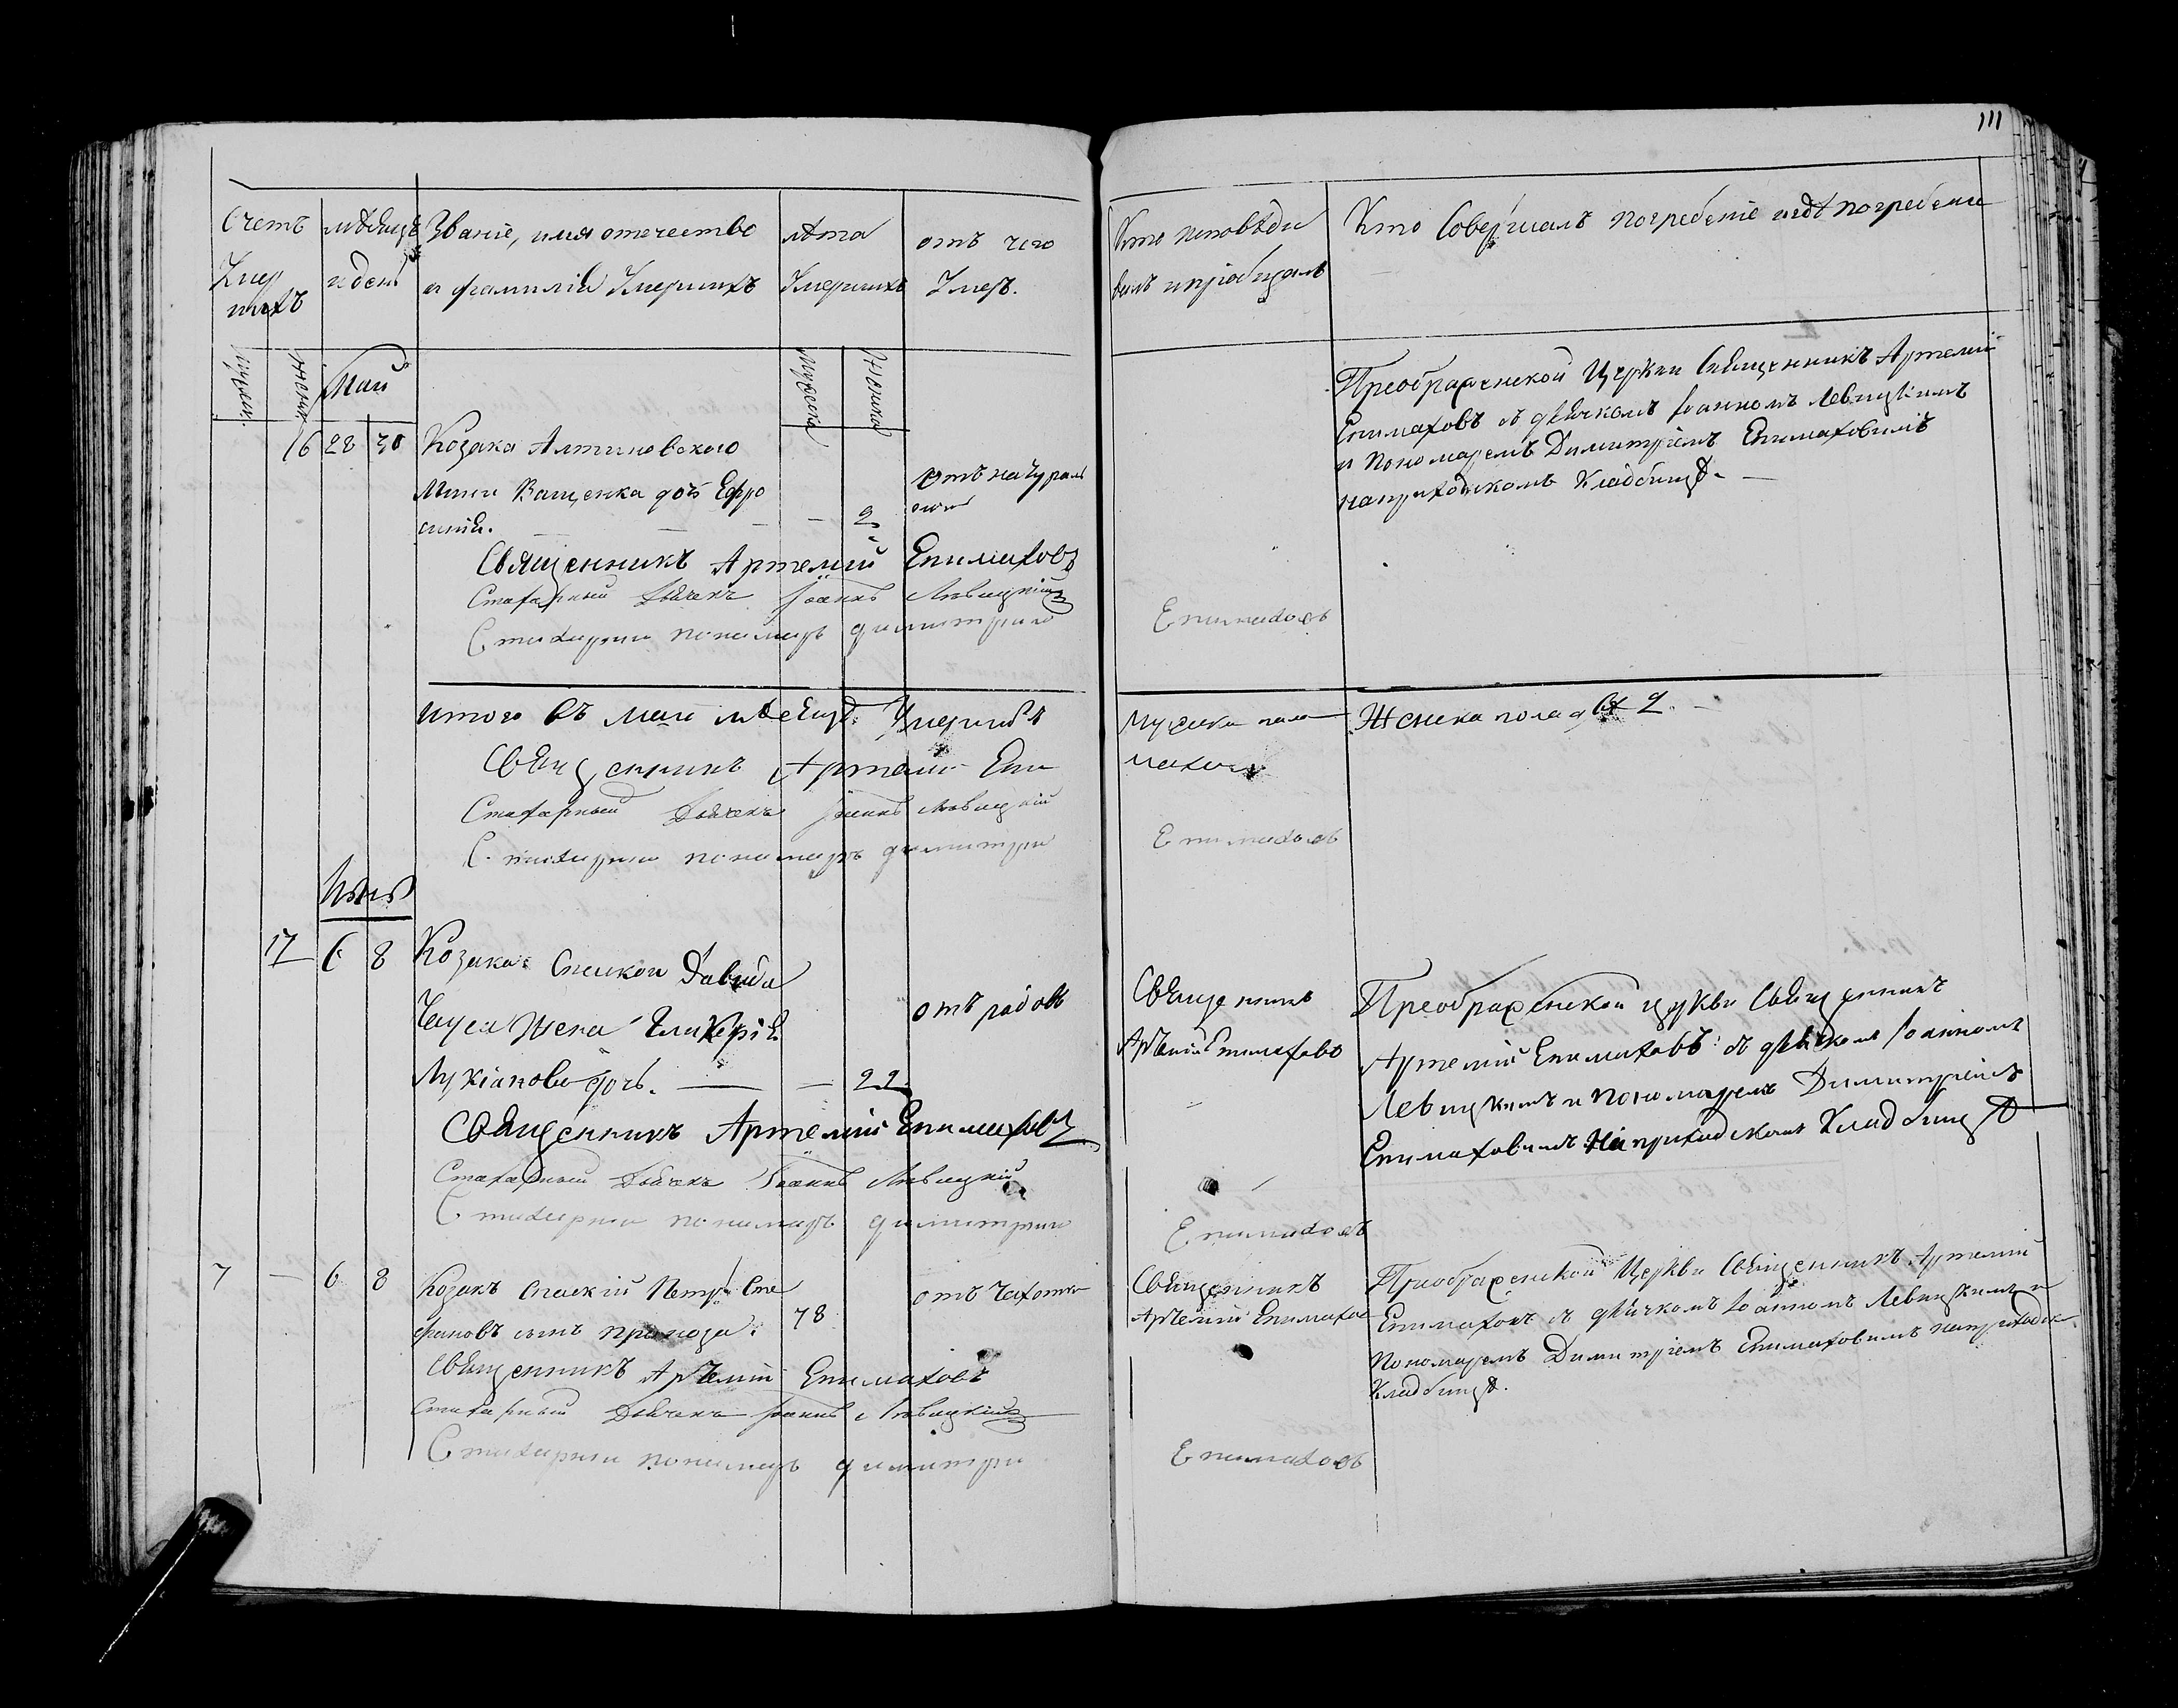 111
Счетъ
Умер
шихъ
мѣсяцъ
и день
Званіе, имя отечество
и фамилій Умершихъ
лѣта
Умершихъ
отъ чего
Умеръ.
Кто исповѣды
валъ и пріобщалъ
Кто Совершалъ погребеніе и гдѣ погребены
Мужеск.
Женск.
Маій
Мужескій
Женскій
16 28 30 Козака Алтиновского
Ващенка дочь Ефро
синія. — — — 2
отъ натураль
Священникъ Артемій Епимаховъ
Стихарный Дьячекъ Іоаннъ Левицкій
Стихарний пономарь Димитрий
Епимаховъ
Преображенской Церкви Священникъ Артемій
Епимаховъ съ дьячкомъ Іоанномъ Левицкимъ
и Пономаремъ Димитріемъ Епимаховимъ
на приходскомъ Кладбищѣ. —
итого въ маіи мѣсяцѣ Умершихъ
Мужеска пола — Женска пола 2. —
Священникъ Артемій Епи
махов
Стихарный Дьячекъ Іоаннъ Левицкій
Стихарний пономарь димитрий
Епимаховъ
Іюнь
17 6 8 Козака Спаской Давида
Чауса Жена Гликерія
Лукіанова дочь. — — 22
отъ родовъ
Священникъ
Артемій Епимаховъ
Преображенской церкви Священникъ
Артемій Епимаховъ съ дьячкомъ Іоанномъ
Левицкимъ и Пономаремъ Димитріемъ
Епимаховимъ на приходскомъ Кладбищѣ
Священникъ Артемій Епимаховъ
Стихарный Дьячекъ Іоаннъ Левицкій
Стихарний пономарь димитрий
Епимаховъ
7 — 6 8 Козакъ Спаскій Петръ Сте
фановъ сынъ 78
отъ Чахотки
Священникъ
Артемій Епимахов
Преображенской Церкви Священникъ Артемій
Епимаховъ съ дьячкомъ Іоанномъ Левицкимъ и
Пономаремъ Димитріемъ Епимаховимъ на приходск.
Кладбищѣ.
Священникъ Артемій Епимаховъ
Стихарный Дьячекъ Іоаннъ Левицкій
Стихарний пономарь димитрий
Епимаховъ